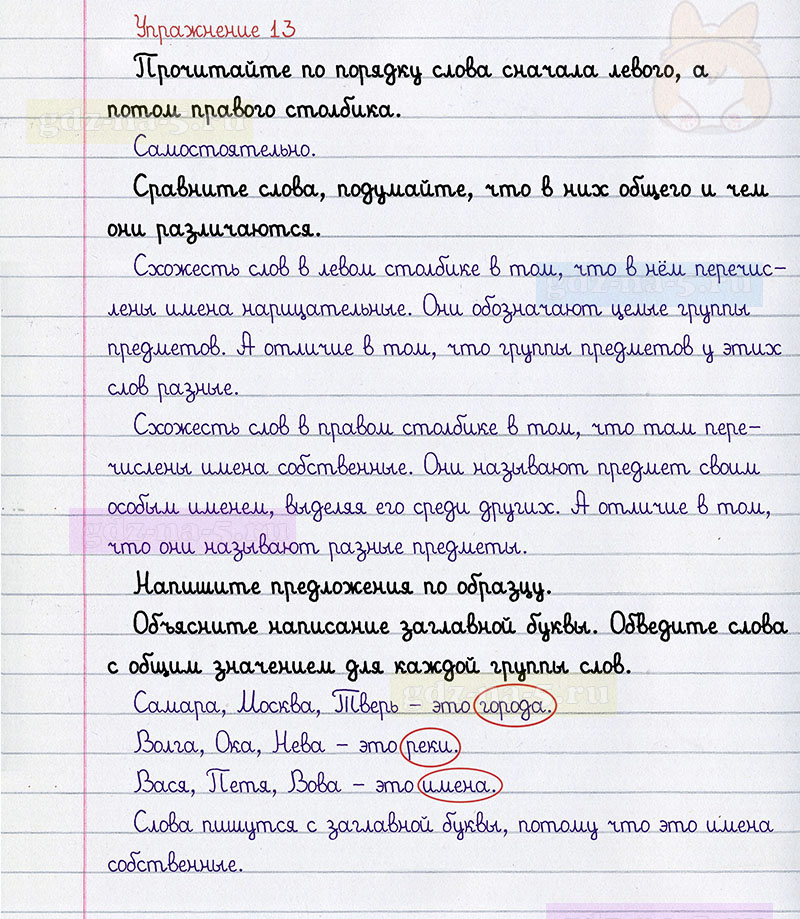 Упражнение 13
Прочитайте по порядку слова сначала левого, а
потом правого столбика.
gdz-na-5.ru
Самостоятельно.
Сравните слова, подумайте, что в них общего и чем
они различаются.
Схожесть слов в левом столбике в том, что в нём перечис-
gdz-na-5.ru
лены имена нарицательные. Они обозначают целые группы
предметов. А отличие в том, что группы предметов у этих
слов разные.
Схожесть слов в правом столбике в том, что там пере-
числены имена собственные. Они называют предмет своим
особым именем, выделяя его среди других. А отличие в том,
gdz-na-5.ru
что они называют разные предметы.
Напишите предложения по образцу.
Объясните написание заглавной буквы. Обведите слова
с общим значением для каждой группы слов.
gdz-na-5.ru
Самара, Москва, Тверь – это города.
Волга, Ока, Нева – это реки.
Вася, Петя, Вова – это имена.
Слова пишутся с заглавной буквы, потому что это имена
собственные.